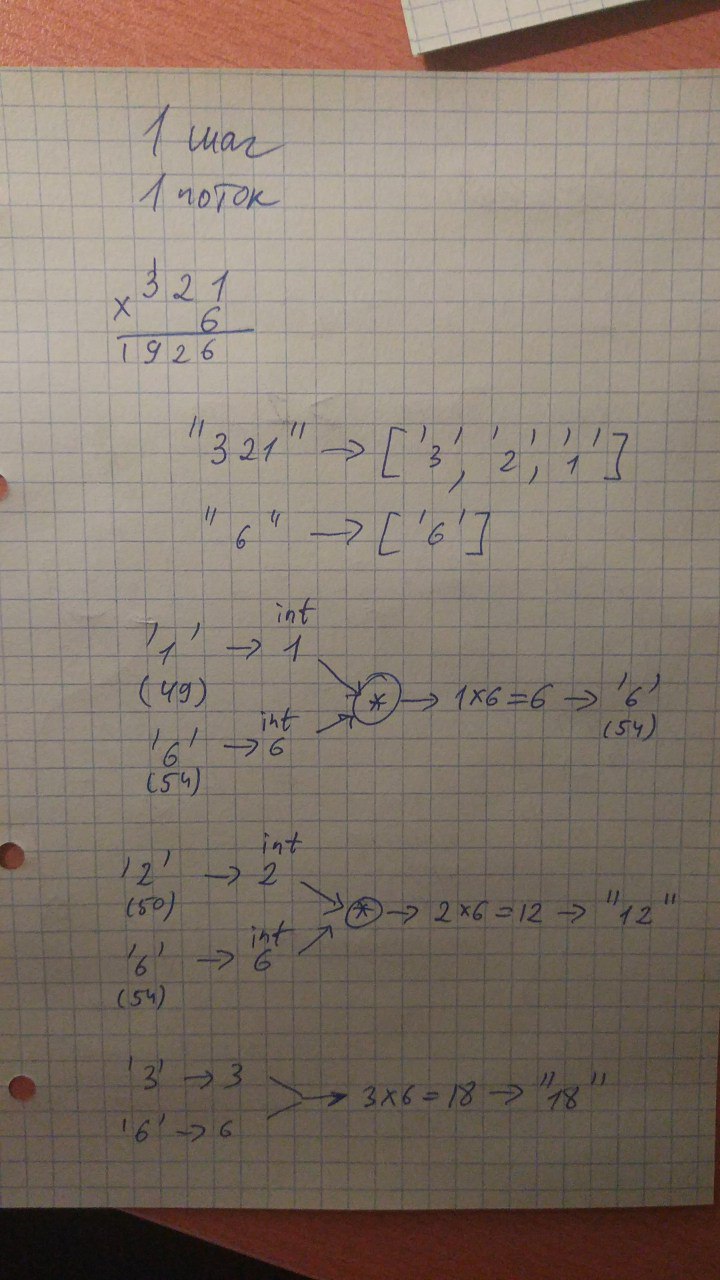 1 шаг
1 поток
1
3 2 1
×
6
1 9 2 6
"321" → ['3', '2', '1']
"6" → ['6']
int
'1' → 1
(49)
* → 1×6=6 → '6'
(54)
int
'6' → 6
(54)
int
'2' → 2
(50)
* → 2×6=12 → "12"
int
'6' → 6
(54)
'3' → 3
→ 3×6=18 → "18"
'6' → 6